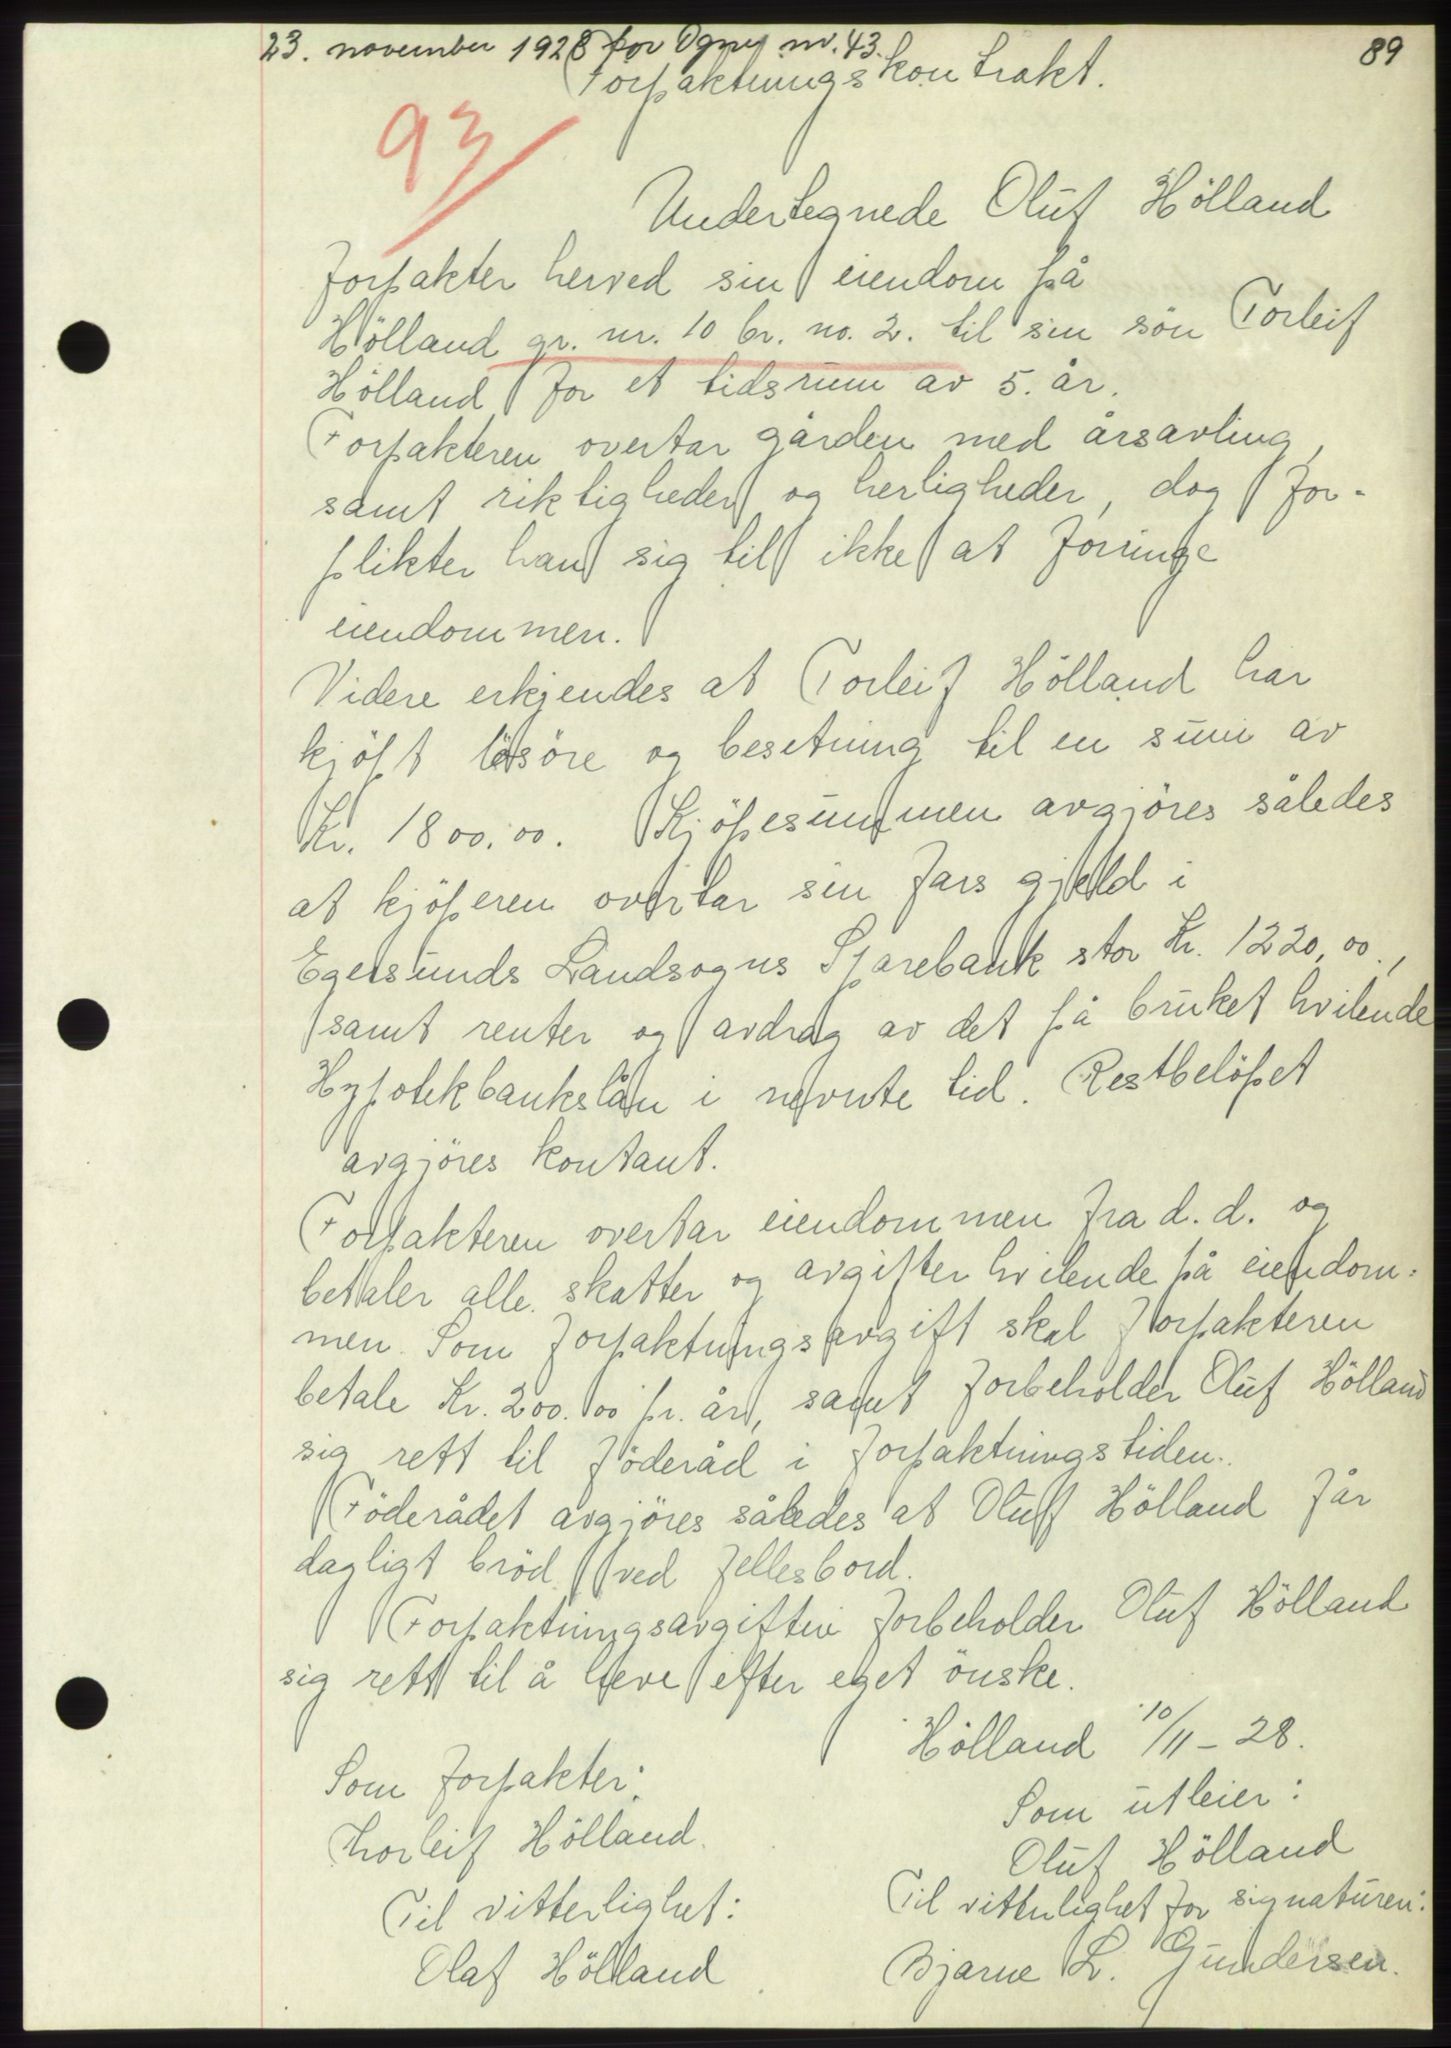 23. november 1928 for Ogna nr. 43.
89
Forpaktningskontrakt.
93
Undertegnede Oluf Hölland
forpakter herved sin eiendom på
Hölland gr. nr. 10 br. no. 2. til sin sön Torleif
Hölland for et tidsrum av 5. år.
Forpakteren overtar gården med årsavling,
samt riktigheder og herligheder, dog for-
plikter han sig til ikke at forringe
eiendommen.
Videre erkjendes at Torleif Hölland har
kjöpt lösöre og besetning til en sum av
Kr. 1800.00. Kjöpesummen avgjöres således
at kjöperen overtar sin fars gjeld i
Egersunds Landsogns Sparebank stor Kr. 1220,00.,
samt renter og avdrag av det på bruket hvilende
Hypotekbankslån i nevnte tid. Restbelöpet
avgjöres kontant.
Forpakteren overtar eiendommen fra d. d. og
betaler alle skatter og avgifter hvilende på eiendom-
men. Som forpaktningsavgift skal forpakteren
betale Kr. 200.00 pr. år, samt forbeholder Oluf Hölland
sig rett til föderåd i forpaktningstiden.
Föderådet avgjöres således at Oluf Hölland får
dagligt bröd ved fellesbord.
Forpaktningsavgiften forbeholder Oluf Hölland
sig rett til å heve efter eget önske.
Hölland 10/11 - 28.
Som forpakter:
Thorleif Hölland.
Til vitterlighet:
Olaf Hölland
Som utleier:
Oluf Hölland
Til vitterlighet for signaturen:
Bjarne L. Gundersen.